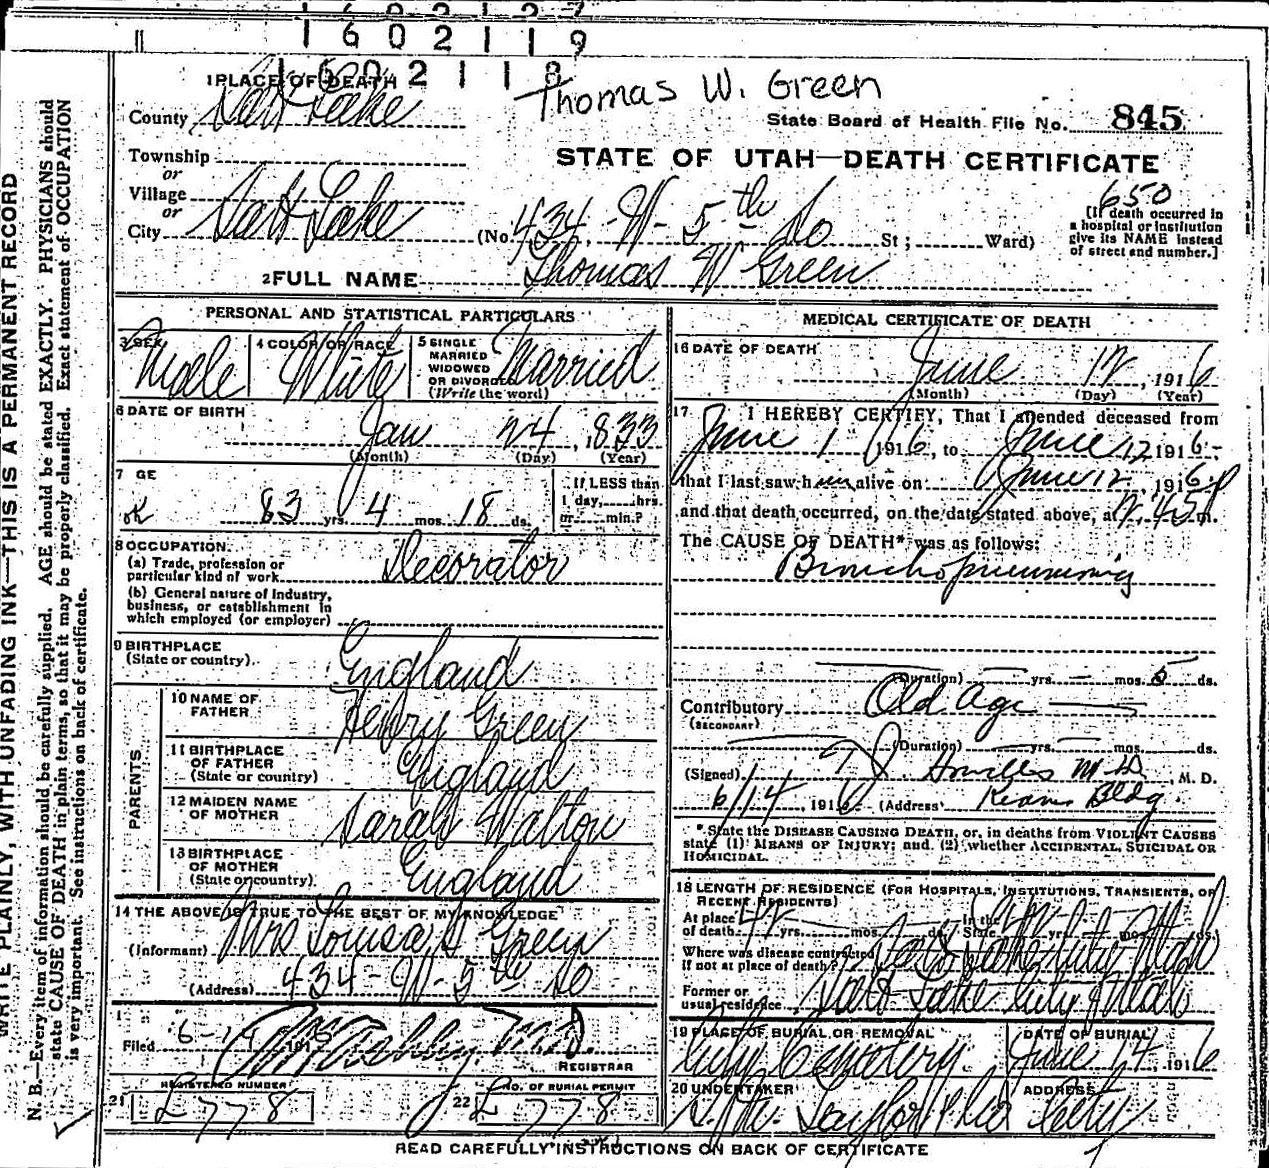 1602119
1602118
Thomas W. Green
1 PLACE OF DEATH
County Salt Lake
State Board of Health File No. 845
Township
or
Village
or
City Salt Lake
STATE OF UTAH—DEATH CERTIFICATE
650
[If death occurred in a hospital or institution give its NAME instead of street and number.]
(No. 434 - W - 5th So St; Ward)
2 FULL NAME Thomas W Green
PERSONAL AND STATISTICAL PARTICULARS
3 SEX Male
4 COLOR OR RACE White
5 SINGLE MARRIED WIDOWED OR DIVORCED (Write the word) Married
6 DATE OF BIRTH
Jan 24, 1833
(Month) (Day) (Year)
7 GE
83 yrs. 4 mos. 18 ds.
If LESS than 1 day, hrs. or min.?
8 OCCUPATION.
(a) Trade, profession or particular kind of work Decorator
(b) General nature of industry, business, or establishment in which employed (or employer)
9 BIRTHPLACE
(State or country) England
PARENTS
10 NAME OF FATHER Henry Green
11 BIRTHPLACE OF FATHER (State or country) England
12 MAIDEN NAME OF MOTHER Sarah Walton
13 BIRTHPLACE OF MOTHER (State or country) England
14 THE ABOVE IS TRUE TO THE BEST OF MY KNOWLEDGE
(Informant) Mrs Louisa Green
(Address) 434 - W - 5th So
Filed 6-14 191
M.D.
REGISTRAR
REGISTERED NUMBER
21 778
22 NO. OF BURIAL PERMIT
778
MEDICAL CERTIFICATE OF DEATH
16 DATE OF DEATH
June 12, 1916
(Month) (Day) (Year)
17 I HEREBY CERTIFY, That I attended deceased from
June 1 1916, to June 12 1916
that I last saw him alive on June 12, 1916
and that death occurred, on the date stated above, at 2.45 P m.
The CAUSE OF DEATH* was as follows:
Bronchopneumonia
(Duration) yrs. mos. 5 ds.
Contributory Old Age
(SECONDARY)
(Duration) yrs. mos. ds.
(Signed) Howells M D, M. D.
6/14, 1916 (Address) Kearns Bldg.
*State the DISEASE CAUSING DEATH, or, in deaths from VIOLENT CAUSES
state (1) MEANS OF INJURY; and (2) whether ACCIDENTAL, SUICIDAL OR
HOMICIDAL.
18 LENGTH OF RESIDENCE (FOR HOSPITALS, INSTITUTIONS, TRANSIENTS, OR
RECENT RESIDENTS)
At place of death 42 yrs. mos. ds. In the State yrs. mos. ds.
Where was disease contracted if not at place of death? Salt Lake City Utah
Former or usual residence Salt Lake City Utah
19 PLACE OF BURIAL OR REMOVAL City Cemetery.
DATE OF BURIAL June 14, 1916
20 UNDERTAKER Taylor
ADDRESS City
READ CAREFULLY INSTRUCTIONS ON BACK OF CERTIFICATE
WRITE PLAINLY, WITH UNFADING INK—THIS IS A PERMANENT RECORD
N. B.—Every item of information should be carefully supplied. AGE should be stated EXACTLY. PHYSICIANS should
state CAUSE OF DEATH in plain terms, so that it may be properly classified. Exact statement of OCCUPATION
is very important. See instructions on back of certificate.